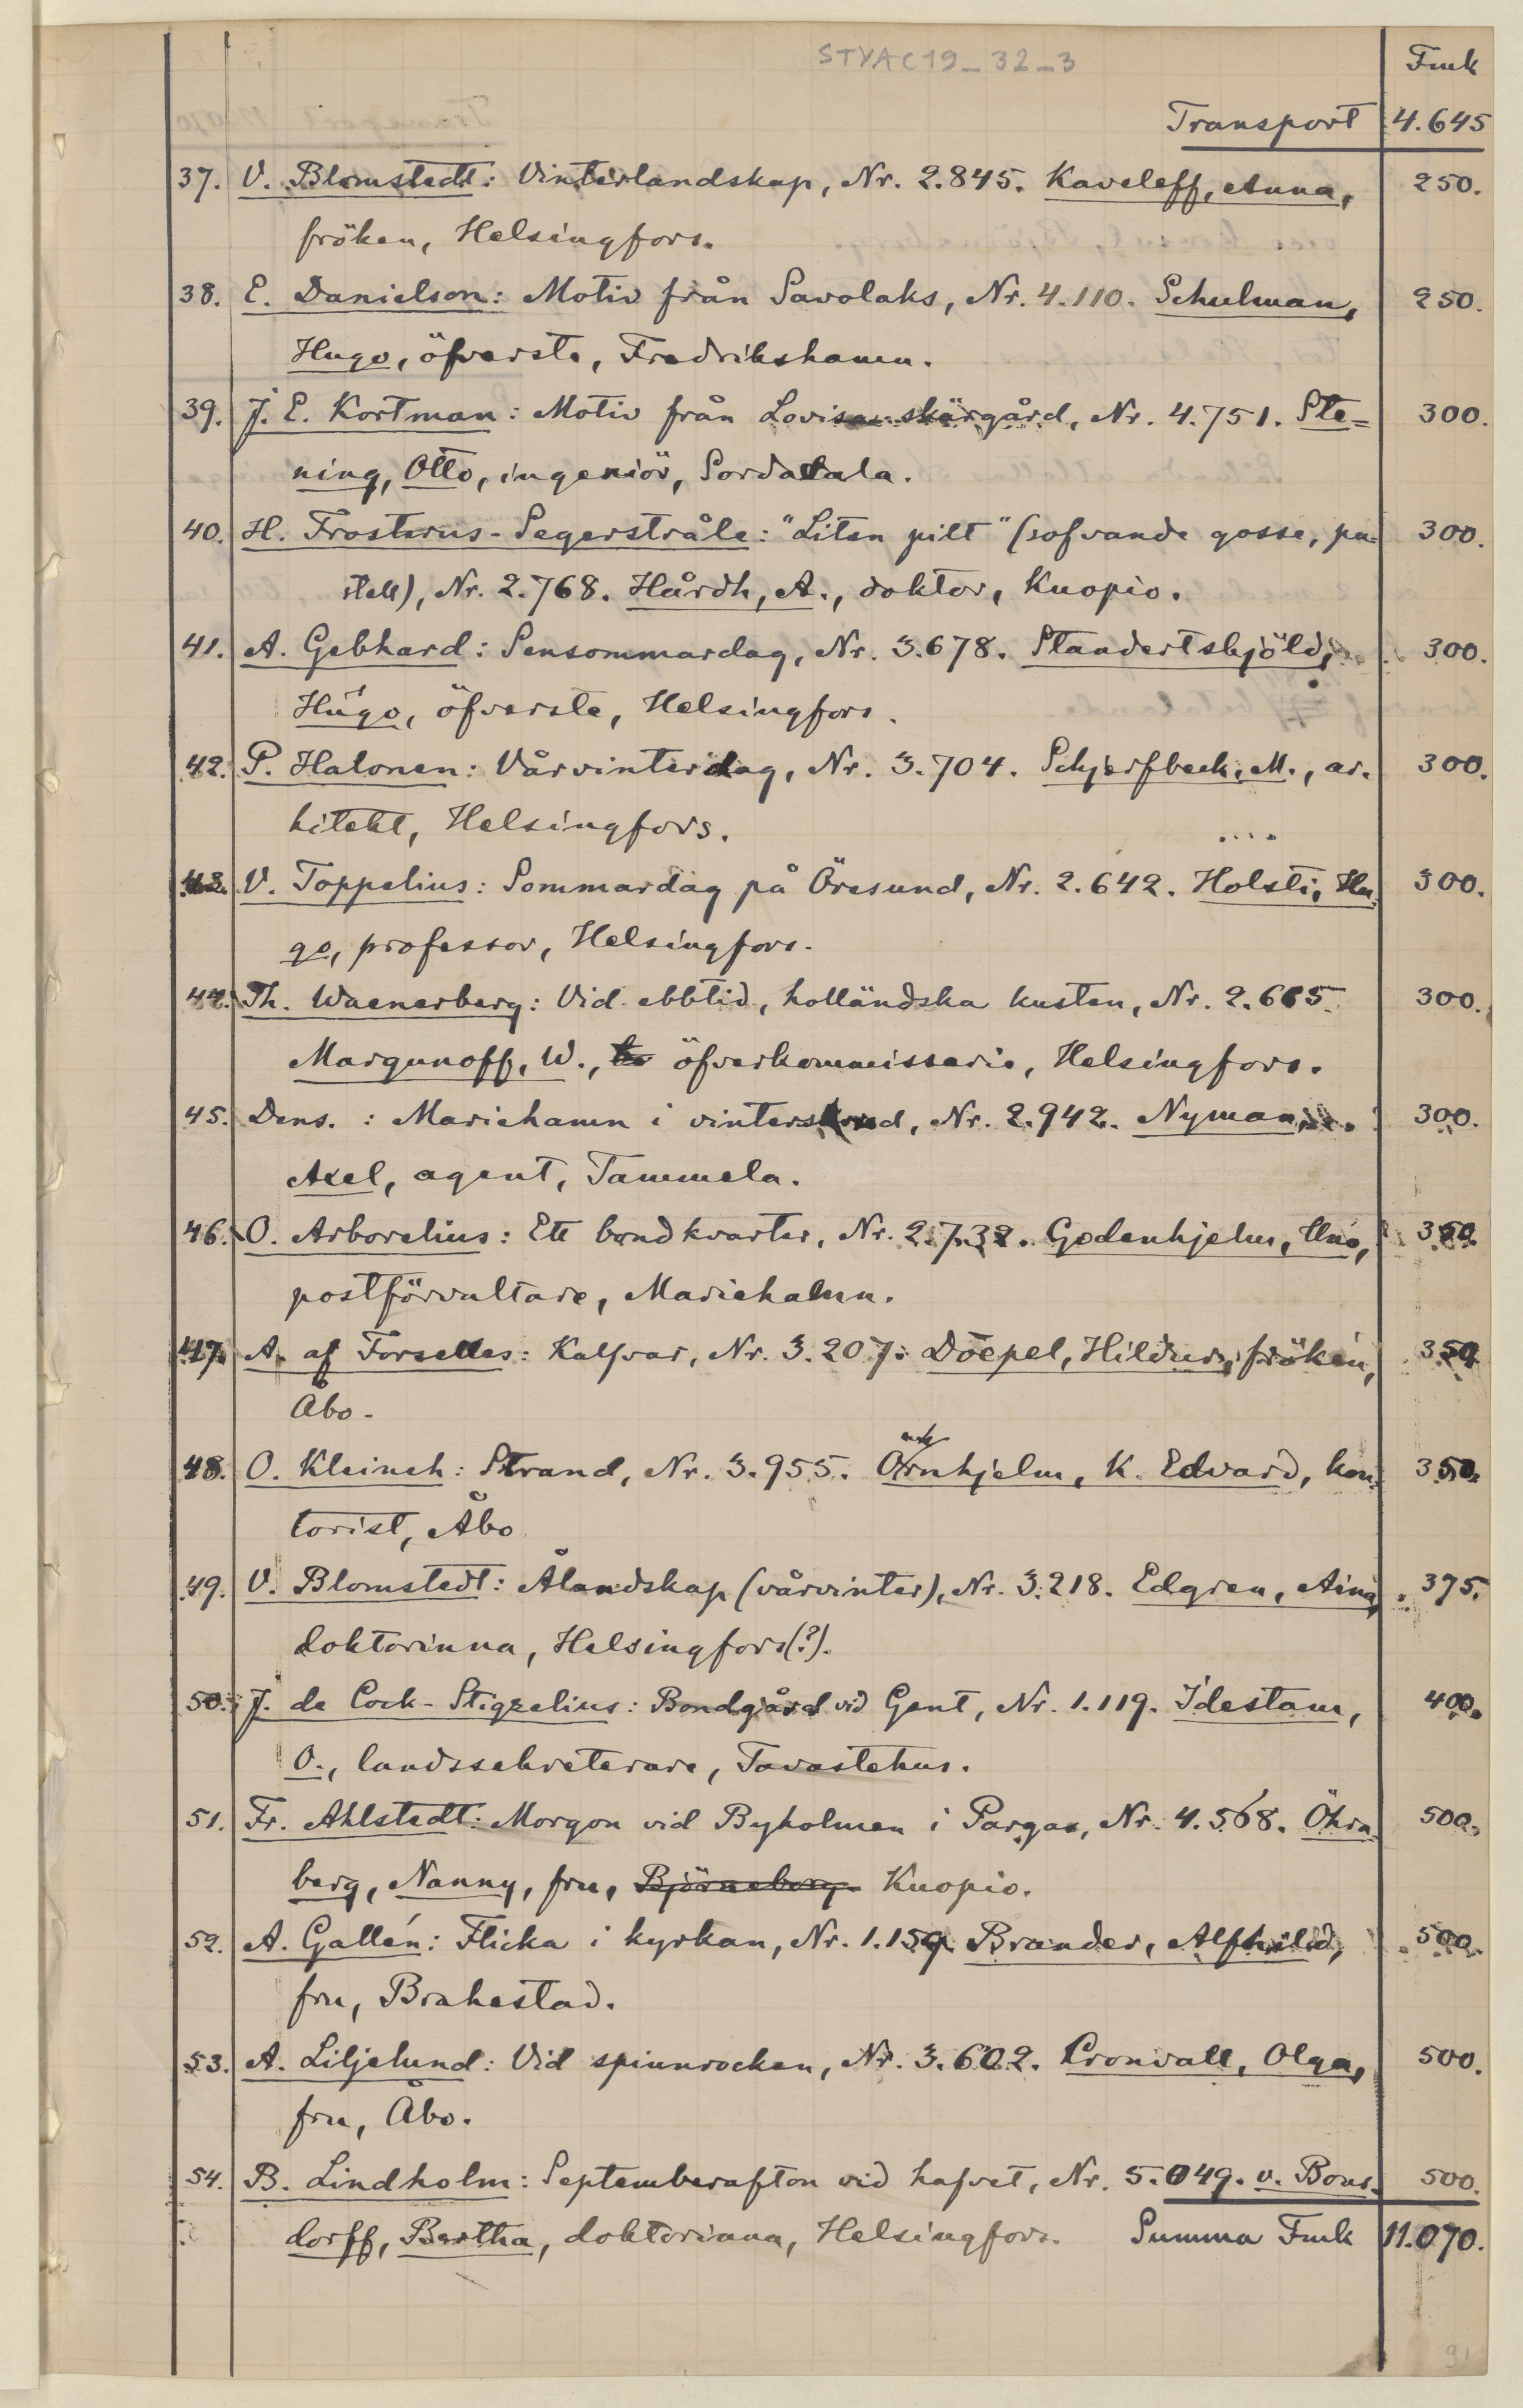 STYAC19_32_3
Fmk
Transport 4.645
37. V. Blomstedt: Vinterlandskap, Nr. 2.845. Kaveleff, Anna, 250.
fröken, Helsingfors.
38. E. Danielson: Motiv från Savolaks, Nr. 4.110. Schulman, 250.
Hugo, öfverste, Fredrikshamn.
39. J. E. Kortman: Motiv från Lovisa skärgård, Nr. 4.751. Ste= 300.
ning, Otto, ingeniör, Sordavala.
40. H. Frosterus-Segerstråle: "Liten pilt" (sofvande gosse, pa- 300.
stell), Nr. 2.768. Hårdh, A., doktor, Kuopio.
41. A. Gebhard: Sensommardag, Nr. 3.678. Standertskjöld, 300.
Hugo, öfverste, Helsingfors.
42. P. Halonen: Vårvinterdag, Nr. 3.704. Schjerfbeck, M., ar- 300.
kitekt, Helsingfors.
43. V. Toppelius: Sommardag på Öresund, Nr. 2.642. Holsti, Hu- 300.
go, professor, Helsingfors.
44. Th. Waenerberg: Vid ebbtid, holländska kusten, Nr. 2.665. 300.
Margunoff, W., öfverkommissarie, Helsingfors.
45. Dens.: Mariehamn i vinterskrud, Nr. 2.942. Nyman, 300.
Axel, agent, Tammela.
46. O. Arborelius: Ett bondkvarter, Nr. 2.732. Godenhjelm, Uno, 350.
postförvaltare, Mariehamn.
47. A. af Forselles: Kalfvar, Nr. 3.207. Döepel, Hildur, fröken, 350.
Åbo.
48. O. Kleineh: Strand, Nr. 3.955. Örnhjelm, K. Edvard, kon- 350.
torist, Åbo
49. V. Blomstedt: Ålandskap (vårvinter), Nr. 3.218. Edgren, Aina, 375.
doktorinna, Helsingfors(?).
50. J. de Cock-Stigzelius: Bondgård vid Gent, Nr. 1.119. Idestam, 400.
O., landssekreterare, Tavastehus.
51. Fr. Ahlstedt: Morgon vid Byholmen i Pargas, Nr. 4.568. Öhrn- 500.
berg, Nanny, fru, Björneborg. Kuopio.
52. A. Gallén: Flicka i kyrkan, Nr. 1.159. Brander, Alfhild, 500.
fru, Brahestad.
53. A. Liljelund: Vid spinnrocken, Nr. 3.602. Cronvall, Olga, 500.
fru, Åbo.
54. B. Lindholm: Septemberafton vid hafvet, Nr. 5.049. v. Bons- 500.
dorff, Bertha, doktorinna, Helsingfors. Summa Fmk 11.070.